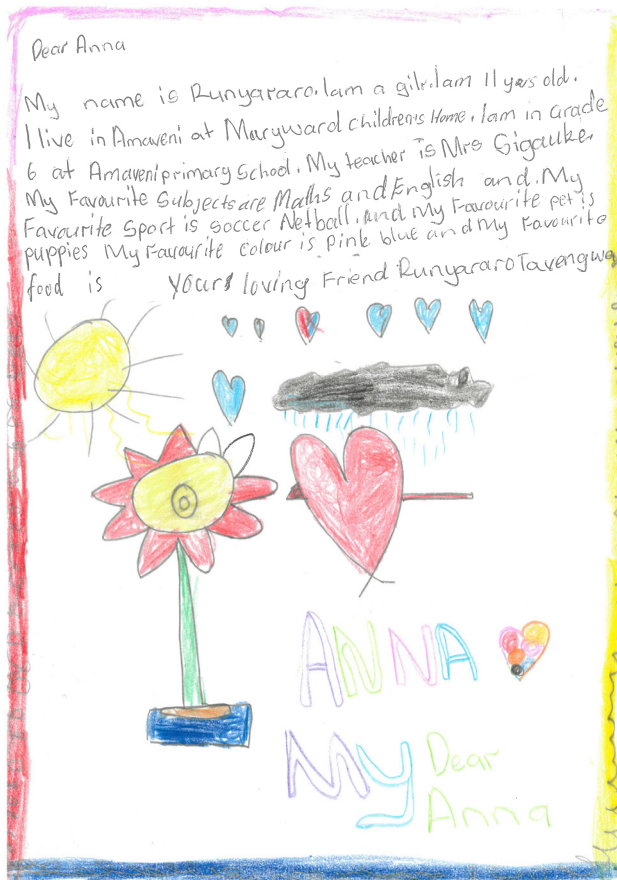 Dear Anna
My name is Runyararo. Iam a gilr. Iam 11 years old.
I live in Amaveni at Maryward children's Home. Iam in Grade
6 at Amaveni primary School. My teacher is Mrs Gigauke.
My Favourite Subjects are Maths and English and. My
Favourite Sport is soccer Netball. and My Favourite pet is
puppies My Favourite colour is Pink blue and My Favourite
food is yours loving Friend Runyararo Tavengwa
ANNA
My Dear
Anna